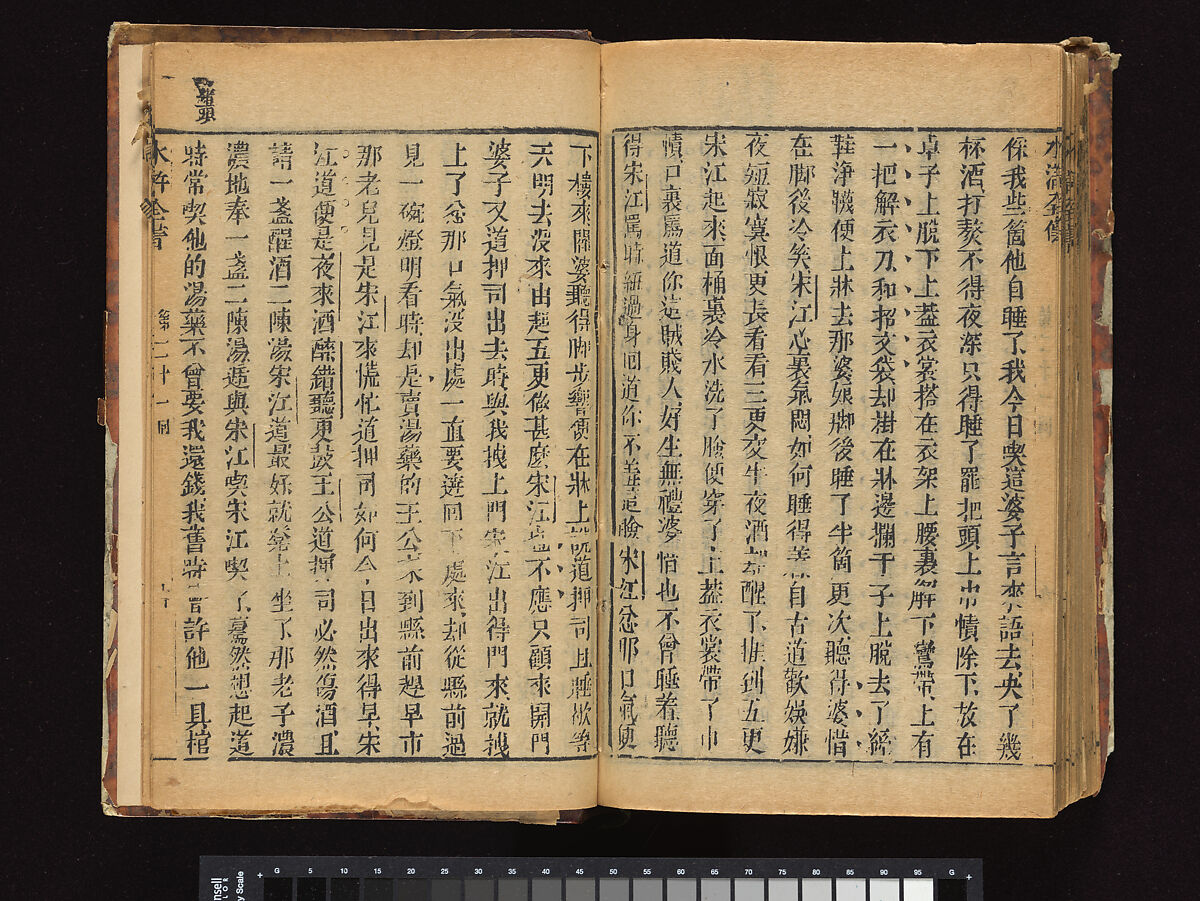 水滸全書
倸我些箇他自睡了我今日喫這婆子言來語去央了幾
杯酒打熬不得夜深只得睡了罷把頭上巾幘除下放在
卓子上脫下上蓋衣裳搭在衣架上腰裏解下鸞帶上有
一把解衣刀和招文袋却掛在牀邊欄干子上脫去了絲
鞋淨襪便上牀去那婆娘脚後睡了半箇更次聽得婆惜
在脚後冷笑宋江心裏氣悶如何睡得着自古道歡娛嫌
夜短寂寞恨更長看看三更交半夜酒却醒了捱到五更
宋江起來面桶裏冷水洗了臉便穿了上蓋衣裳帶了巾
幘口裏罵道你這賊賤人好生無禮婆惜也不曾睡着聽
得宋江罵時扭過身回道你不羞這臉宋江忿那口氣便
下樓來閻婆聽得脚步響便在牀上說道押司且睡歇等
天明去沒來由起五更做甚麽宋江也不應只顧來開門
婆子又道押司出去時與我拽上門宋江出得門來就拽
上了忿那口氣沒出處一直要逩回下處來却從縣前過
見一碗燈明看時却是賣湯藥的王公來到縣前趕早市
那老兒見是宋江來慌忙道押司如何今日出來得早宋
江道便是夜來酒醉錯聽更鼓王公道押司必然傷酒且
請一盞醒酒二陳湯宋江道最好就凳上坐了那老子濃
濃地奉一盞二陳湯遞與宋江喫宋江喫了驀然想起道
時常喫他的湯藥不曾要我還錢我舊時曾許他一具棺
水滸全書 第二十一回